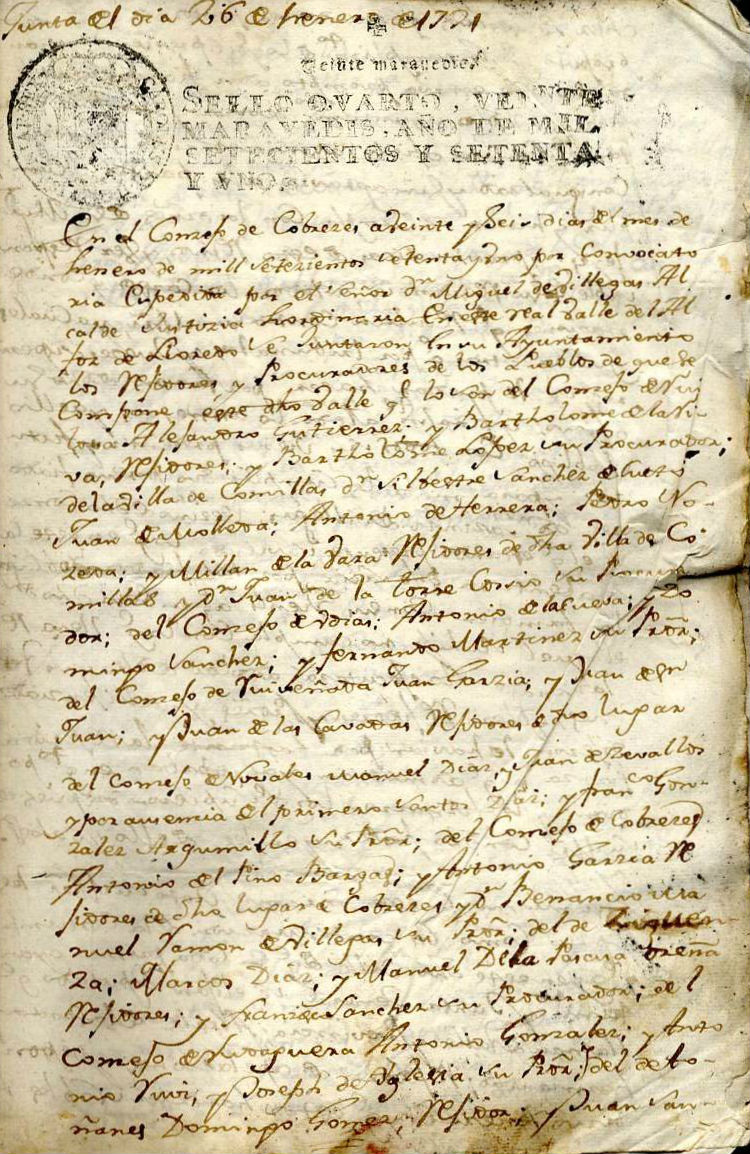 Junta del dia 26 de henero de 1771
Veinte maravedis.
SELLO QVARTO, VEINTE
MARAVEDIS, AÑO DE MIL
SETECIENTOS Y SETENTA
Y VNO.
En el Conzejo de Cobreres a Veinte y Seis dias del mes de
henero de mill setezientos setenta y uno por Convocato
ria Expedida por el Señor Dn Miguel de Villegas Al
calde Justizia hordinaria En este real Valle del Al
foz de Lloredo Se Juntaron En su Ayuntamiento
los Rejidores, y Procuradores de los Pueblos de que se
Compone este dho Valle q lo son del Conzejo de Rui
loua Alejandro Gutierrez; y Bartholome de la Vi-
va, Rejidores; y Bartholome Lopez su Procurador;
de la Villa de Comillas Dn Silbestre Sanchez de Cueto
Juan de Molleda; Antonio de Herrera; Pedro No-
zeda; y Millan de la Vara Rejidores de dha Villa de Co-
millas y Dn Juan de la torre Cossio su Procura
dor; del Conzejo de Vdias; Antonio de la Cueva; y Do
mingo Sanchez; y fernando Martinez su Pror;
del Conzejo de Ruiseñada Juan Garzia; y Juan de Sn
Juan; y Juan de las Cavadas Rejidores de dho lugar
del Conzejo de Novales Manuel Diaz, y Juan de Zevallos
y por ausencia del primero Santos Diaz; y franco Gon-
zalez Argumillo su Pror; del Conzejo de Cobreres
Antonio del Pino Bargas; y Antonio Garzia Re
jidores de dho lugar de Cobreres y Dn Benancio Ma
nuel Ramon de Villegas su Pror; del de Ziguen
za; Marcos Diaz; y Manuel De la Pascua Oreña
Rejidores; y Franzisco Sanchez su Procurador; del
Conzejo de Rudaguera Antonio Gonzalez; y Anto
nio Ruiz; y Joseph de Yglesia su Pror; del de to-
ñanes Domingo Gomez, Rejidor; y Juan San-